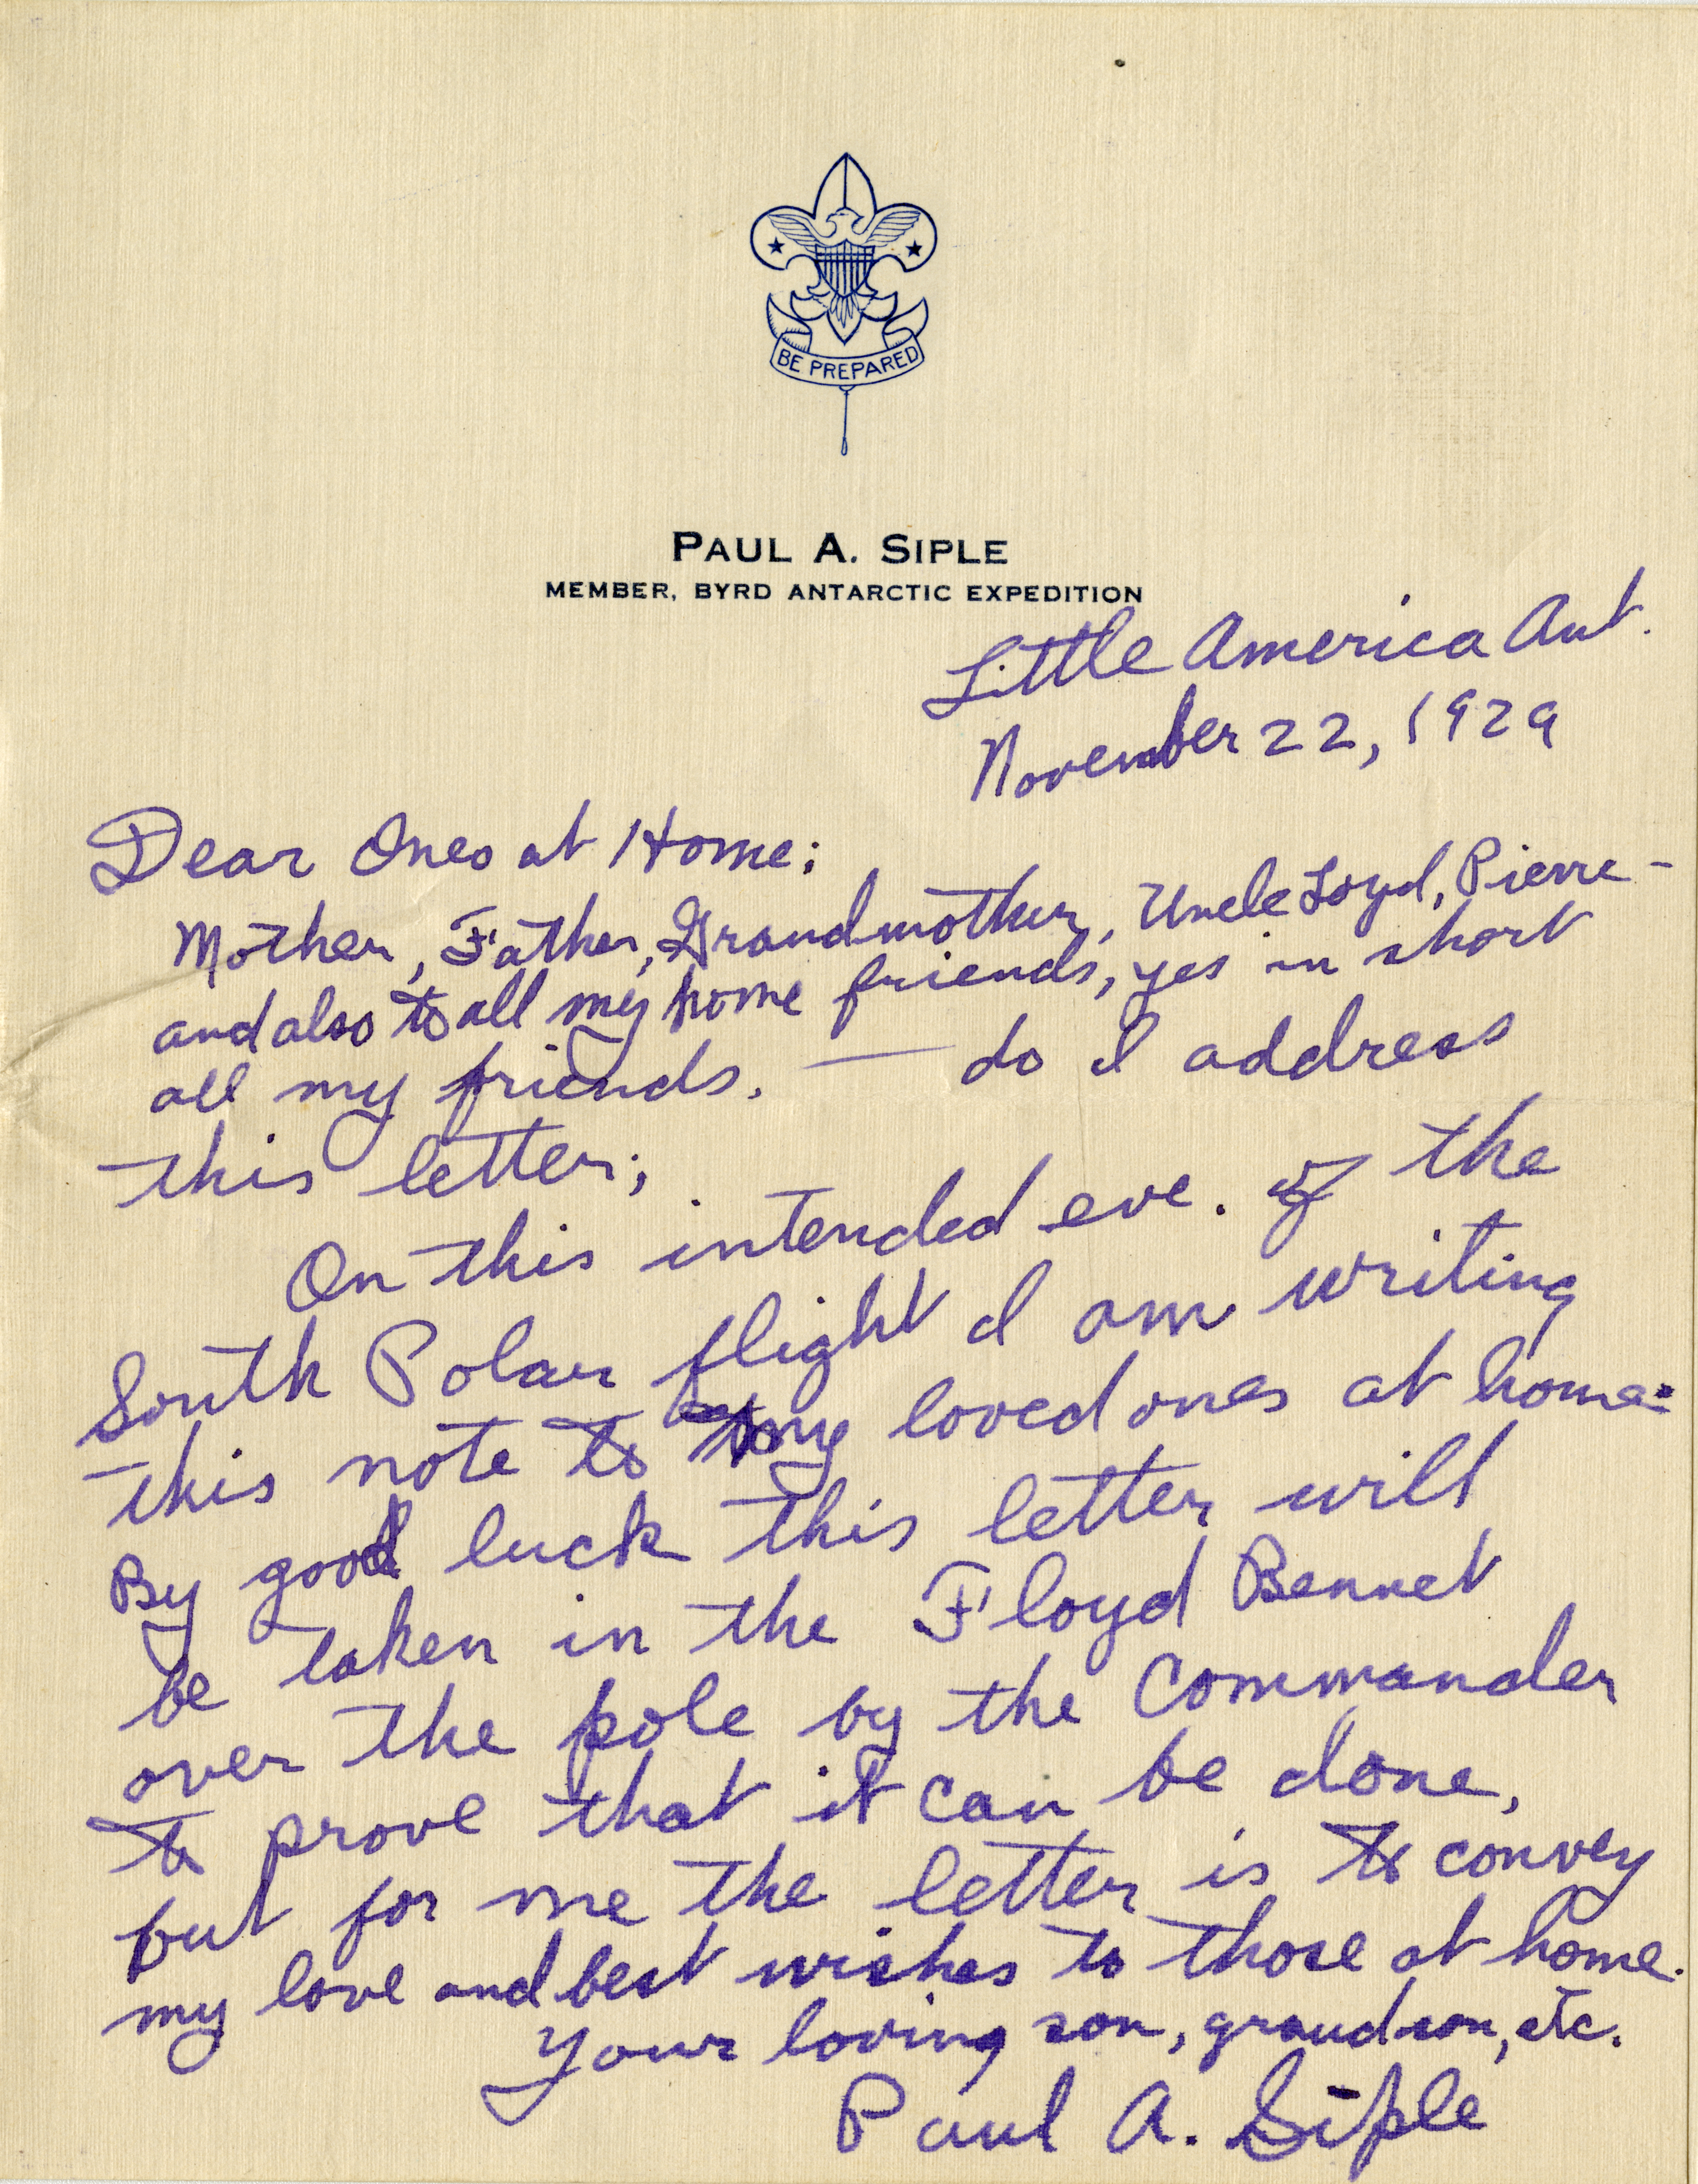 BE PREPARED
PAUL A. SIPLE
MEMBER, BYRD ANTARCTIC EXPEDITION
Little America Ant.
November 22, 1929
Dear Ones at Home:
Mother, Father, Grandmother, Uncle Loyd, Pierre –
and also to all my home friends, yes in short
all my friends. — do I address
this letter;
On this intended eve. of the
South Polar flight I am writing
this note to my loved ones at home.
By good luck this letter will
be taken in the Floyd Bennet
over the pole by the Commander
to prove that it can be done,
but for me the letter is to convey
my love and best wishes to those at home.
Your loving son, grandson, etc.
Paul A. Siple